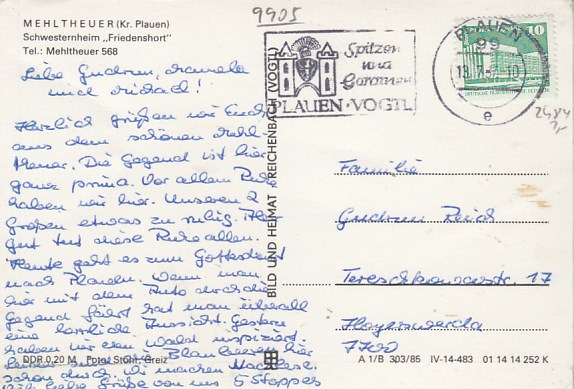 9905
MEHLTHEUER (Kr. Plauen)
Schwesternheim „Friedenshort"
Tel.: Mehltheuer 568
Liebe Gudrun,
Herzlich grüßen wir Euch
aus dem schönen Mehl-
theuer. Die Gegend ist hier
ganz prima. Vor allem Ruhe
haben wir hier. Unseren 2
Großen etwas zu ruhig.
gut tut diese Ruhe allen.
Heute geht es zum Gottesdienst
nach Plauen. Wenn man
hier mit dem Auto durch die
Gegend fährt hat man überall
eine herrliche Aussicht. Gestern
haben wir den Wald inspiziert.
Blaubeeren hier
schon durch. Wir machen Nachlese.
liebe Grüße von uns 5
DDR 0,20 M Foto: Stöhr, Greiz
BILD UND HEIMAT REICHENBACH (VOGTL)
Spitzen
und
Gardinen
PLAUEN · VOGTL
PLAUEN
99
e
10
2484
Familie
Gudrun
17
Hoyerswerda
7700
A 1/B 303/85 IV-14-483 01 14 14 252 K